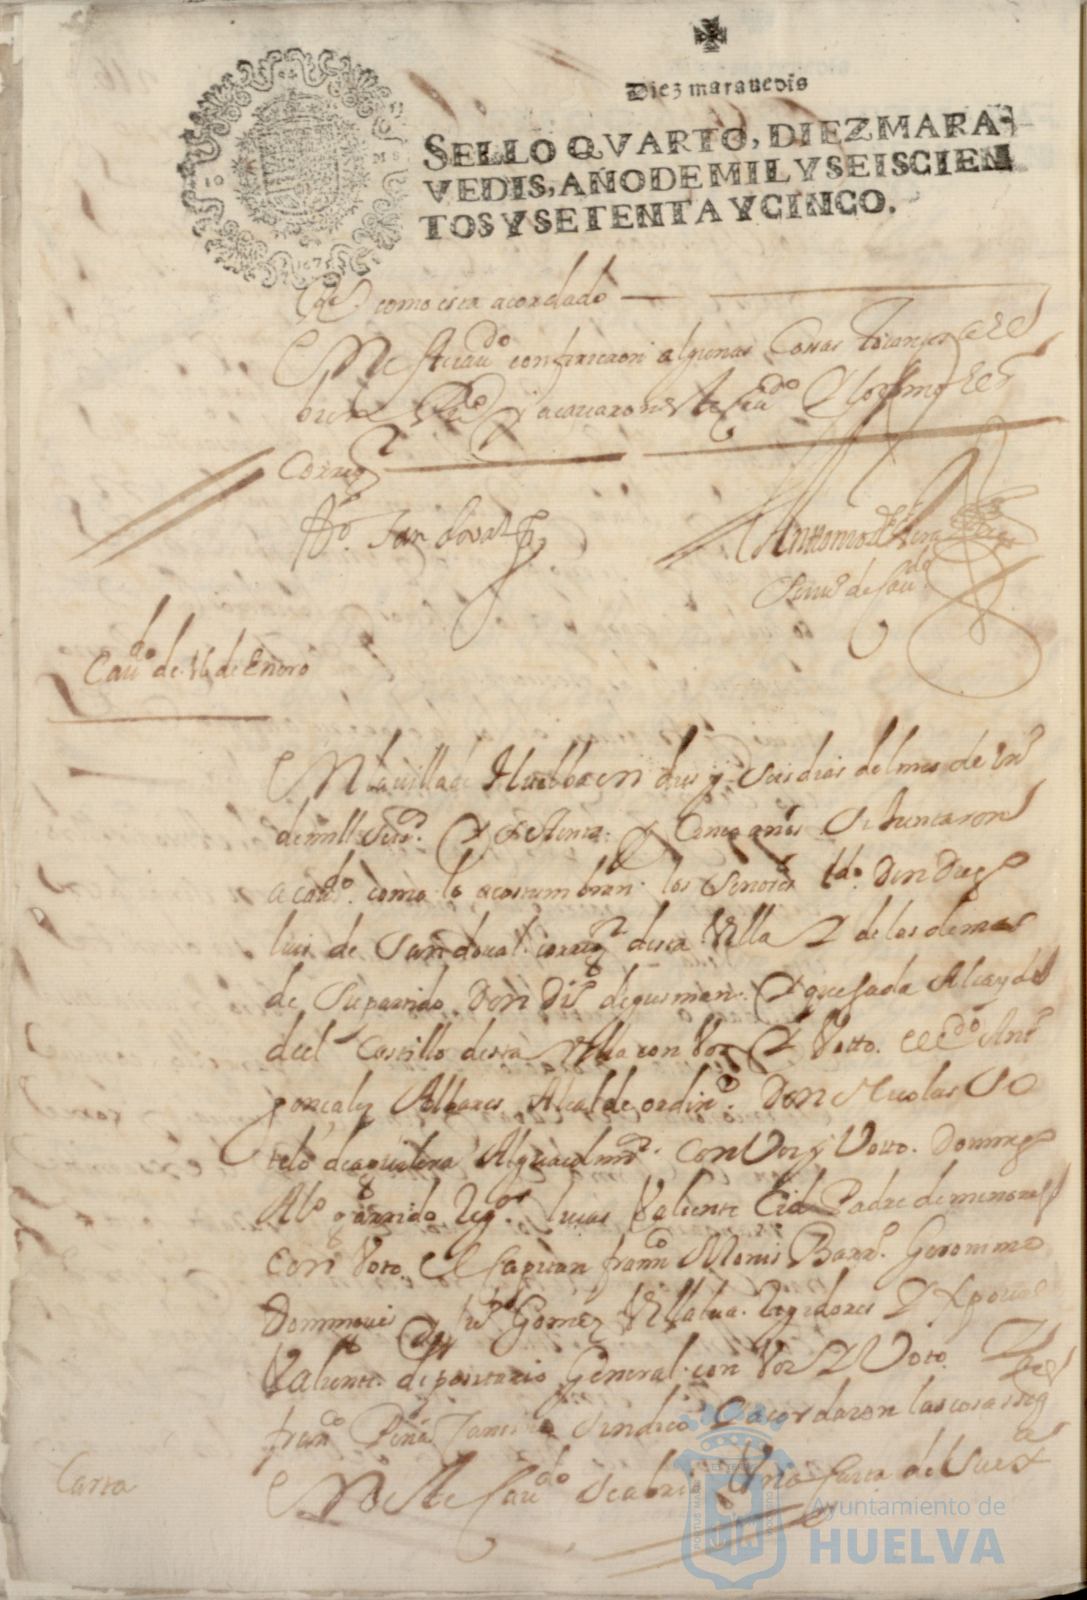 Diez maravedis
SELLO QVARTO, DIEZ MARA-
VEDIS, AÑO DE MIL Y SEISCIEN
TOS Y SETENTA Y CINCO.
1675
como esta acordado
En este caudo confirieron algunas Cossas tocantes al
y acavaron este caudo Y lo firmo el sr
Corregr
Sandoval
Antonio de
Scriuo de Caudo
Caudo de 16 de Enero
En la villa de Huelba en dies y seis dias del mes de En
de mill seiso Y setenta Y Cinco años se Juntaron
a caudo como lo acostumbran los señores Ldo Don Diego
luis de Sandoual corregr desta Villa Y de los demas
de su partido Don Di de gusman Y quesada Alcayde
del Castillo desta Villa con Voz Y Votto. el Ldo Anto
gonçales Albares Alcalde ordino Don Nicolas So
telo de aguilera Alguacil mor con Voz y Votto. Domingo
Alo garrido Regor lucas Valiente Cid Padre de menores
con Voto el Capitan franco Monis Barro Geronimo
Domingues Gomez Villalua Regidores Y Xpoual
Valiente depositario General con Voz Y Voto
franco Peña sindico acordaron las cosas sigtes
Carta
En este Caudo se abrio Una Carta del
Ayuntamiento de
HUELVA